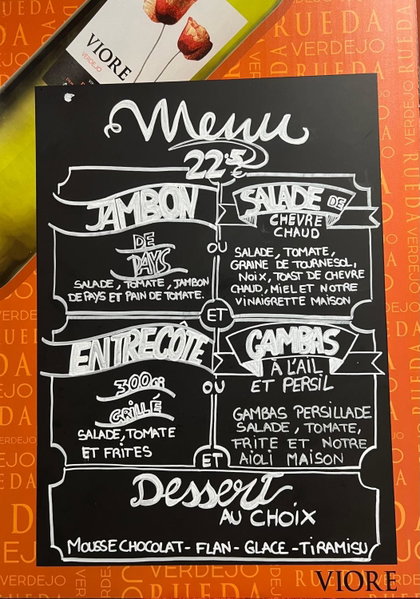 RUEDA
VERDEJO
VIORE
VERDEJO
RUEDA
Menu
22,5€
JAMBON
DE
PAYS
SALADE, TOMATE, JAMBON
DE PAYS ET PAIN DE TOMATE.
OU
SALADE DE
CHEVRE
CHAUD
SALADE, TOMATE,
GRAINE DE TOURNESOL,
NOIX, TOAST DE CHEVRE
CHAUD, MIEL ET NOTRE
VINAIGRETTE MAISON
ET
ENTRECÔTE
300Gr
GRILLÉ
SALADE, TOMATE
ET FRITES
OU
GAMBAS
À L'AIL
ET PERSIL
GAMBAS PERSILLADE
SALADE, TOMATE,
FRITE ET NOTRE
AÏOLI MAISON
ET
Dessert
AU CHOIX
MOUSSE CHOCOLAT - FLAN - GLACE - TIRAMISU
VERDEJO
VIORE